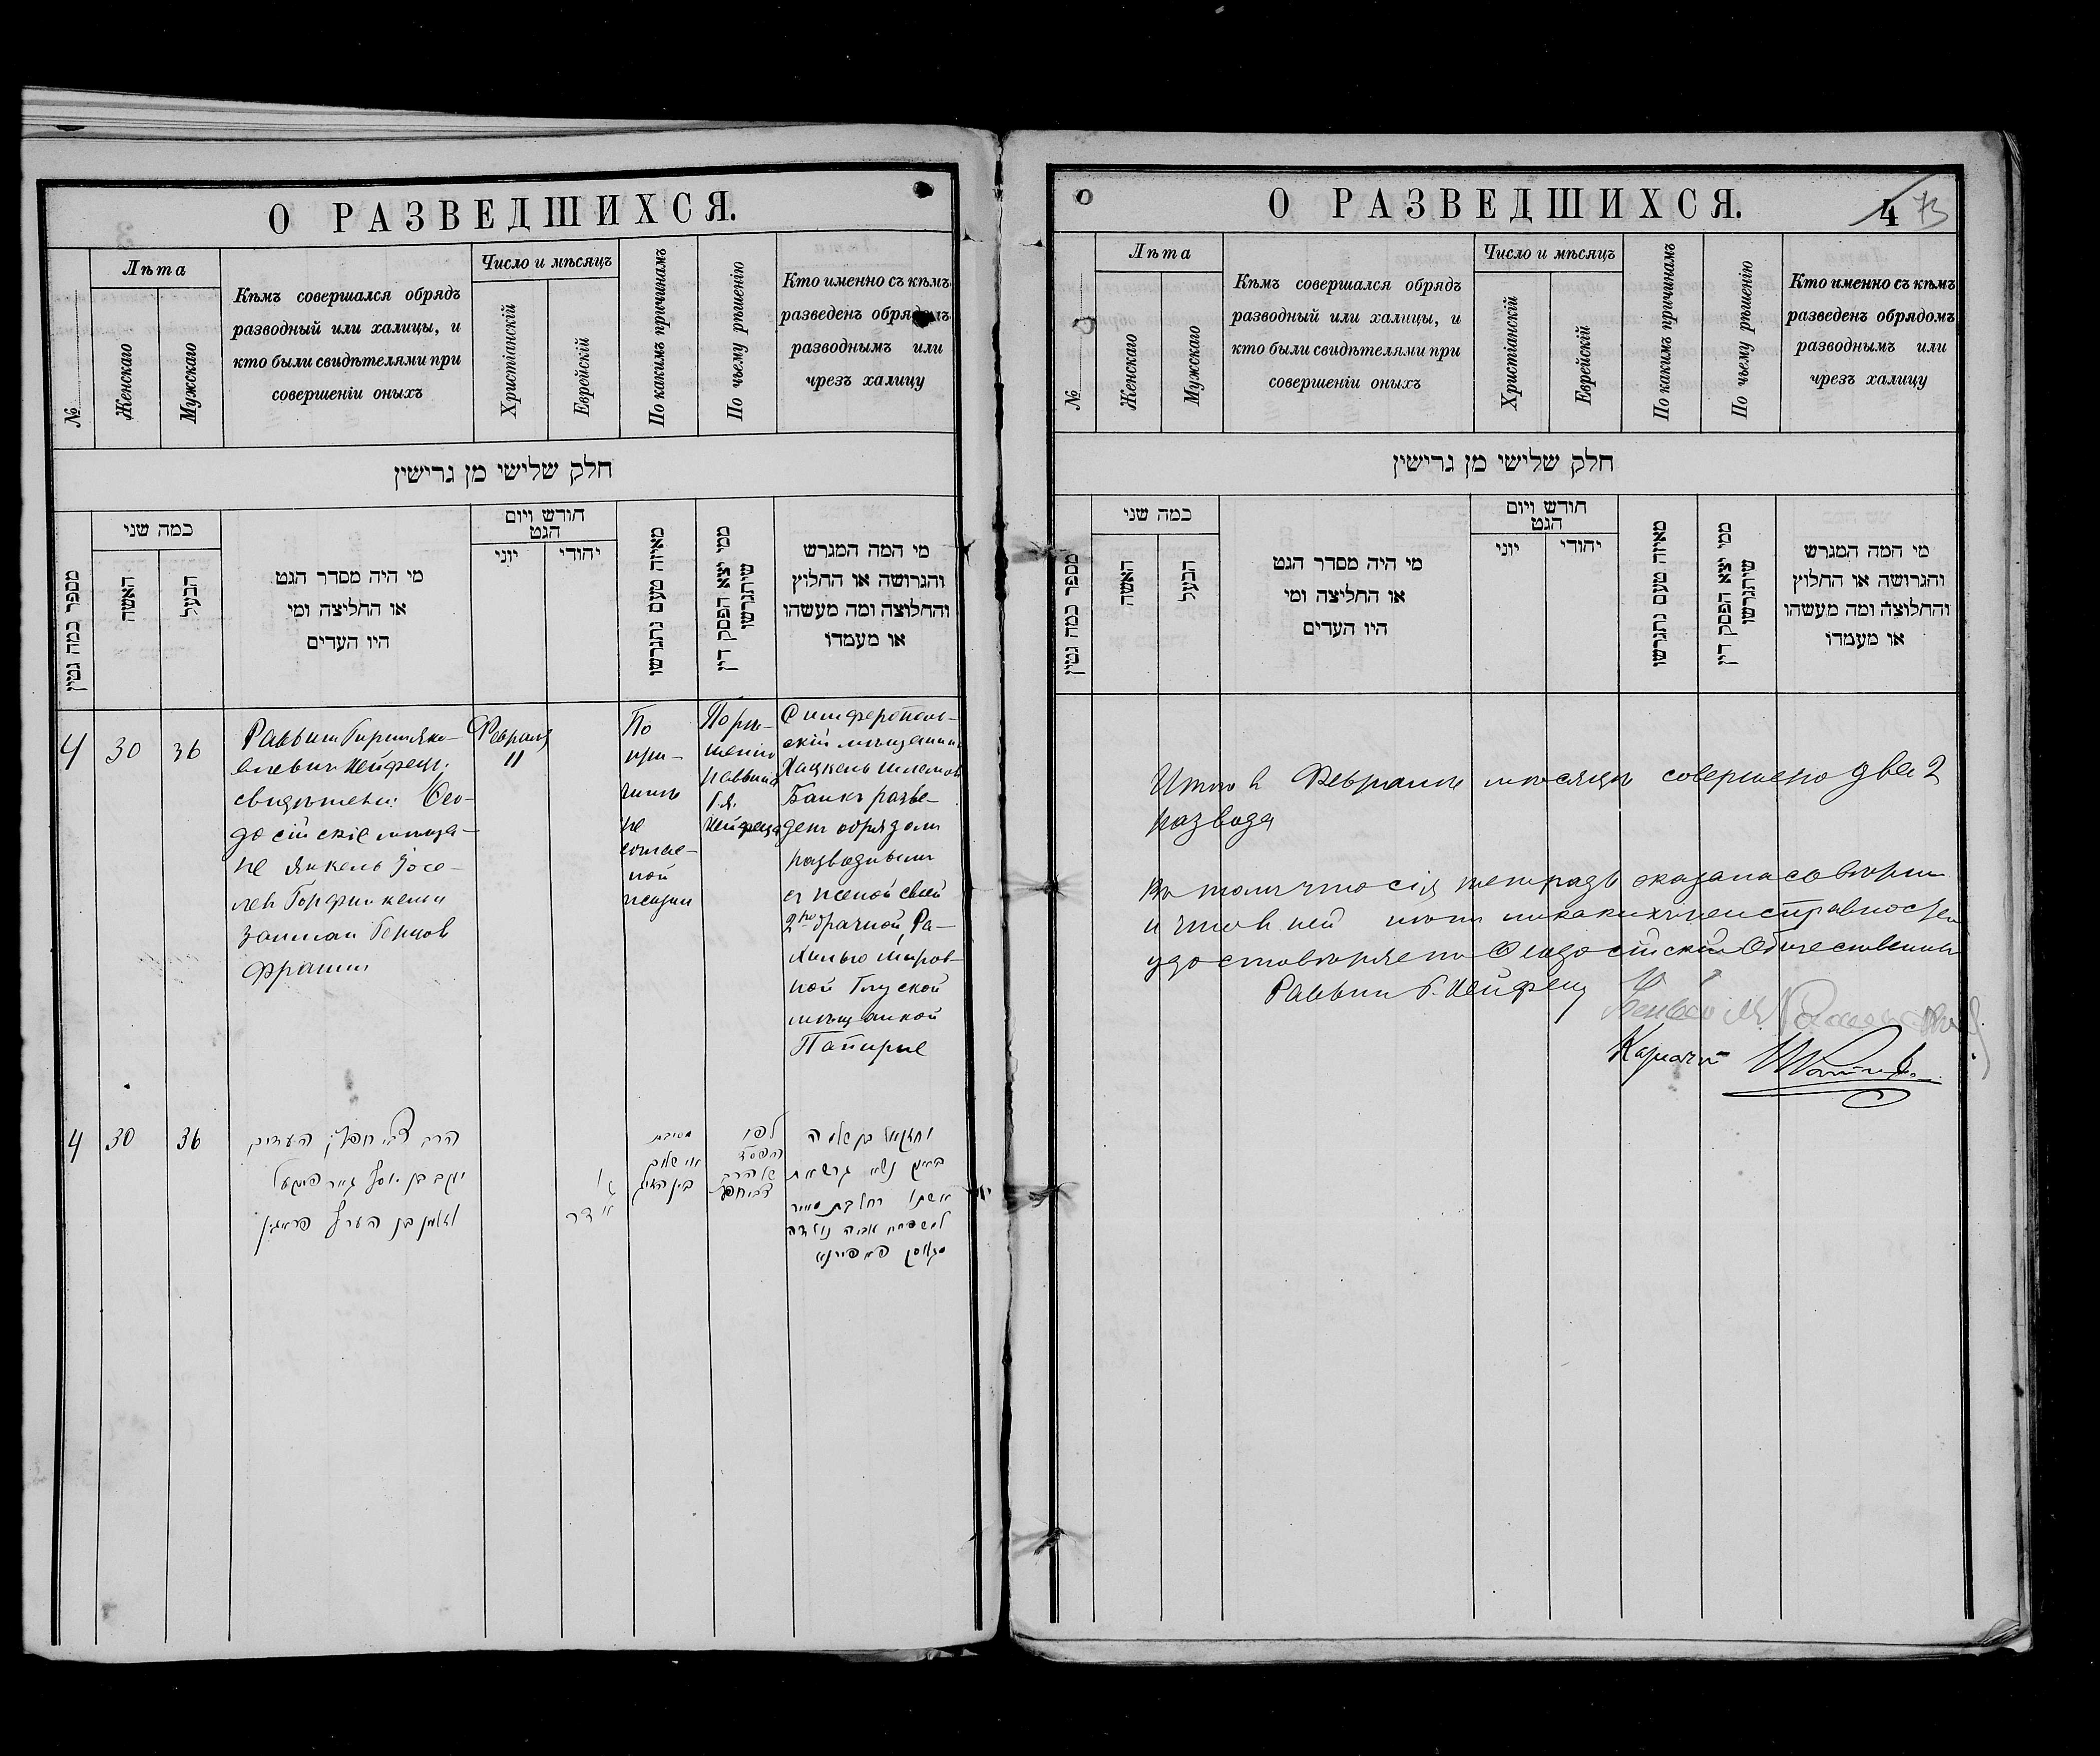 О РАЗВЕДШИХСЯ.
№
Лѣта
Женскаго
Мужскаго
Кѣмъ совершался обрядъ
разводный или халицы, и
кто были свидѣтелями при
совершеніи оныхъ
Число и мѣсяцъ
Христіанскій
Еврейскій
По какимъ причинамъ
По чьему рѣшенію
Кто именно съ кѣмъ
разведенъ обрядомъ
разводнымъ или
чрезъ халицу
חלק שלישי מן גרישין
מספר כמה גטין
כמה שני
האשה
הבעל
מי היה מסדר הגט
או החליצה ומי
היו העדים
חודש ויום
הגט
יוני
יהודי
מאיזה טעם נתגרשו
ממי יצא הפסק דין
שיתגרשו
מי המה המגרש
והגרושה או החלוץ
והחלוצה ומה מעשהו
או מעמדו
4
30
36
Раввин Гирш Яко-
влевич Хейфец.
свидетели Ѳео-
досійскіе меща-
не Янкель Іосе-
лев Горфинкель
Залман Бенцов
Февраля
11
По
при-
чине
не
соглас-
ной
жизни
По рѣ-
шенію
раввина
Г. Я.
Хейфеца
Симферополь-
скій мещанин
Хацкель Шлемов
Банк разве-
ден обрядом
разводным
с женой своей
2-брачной, Ра-
хилью Меиров-
ной Глуской
мещанкой
4
30
36
יעקב בן יוסף
О РАЗВЕДШИХСЯ.
4 73
№
Лѣта
Женскаго
Мужскаго
Кѣмъ совершался обрядъ
разводный или халицы, и
кто были свидѣтелями при
совершеніи оныхъ
Число и мѣсяцъ
Христіанскій
Еврейскій
По какимъ причинамъ
По чьему рѣшенію
Кто именно съ кѣмъ
разведенъ обрядомъ
разводнымъ или
чрезъ халицу
חלק שלישי מן גרישין
מספר כמה גטין
כמה שני
האשה
הבעל
מי היה מסדר הגט
או החליצה ומי
היו העדים
חודש ויום
הגט
יוני
יהודי
מאיזה טעם נתגרשו
ממי יצא הפסק דין
שיתגרשו
מי המה המגרש
והגרושה או החלוץ
והחלוצה ומה מעשהו
או מעמדו
Итого в Феврале месяце совершено два 2
развода
В том что сія тетрадь оказалась верна
и что в ней нет никаких неисправностей
удостоверяет Ѳеодосійскій Общественный
Раввин Г. Хейфец